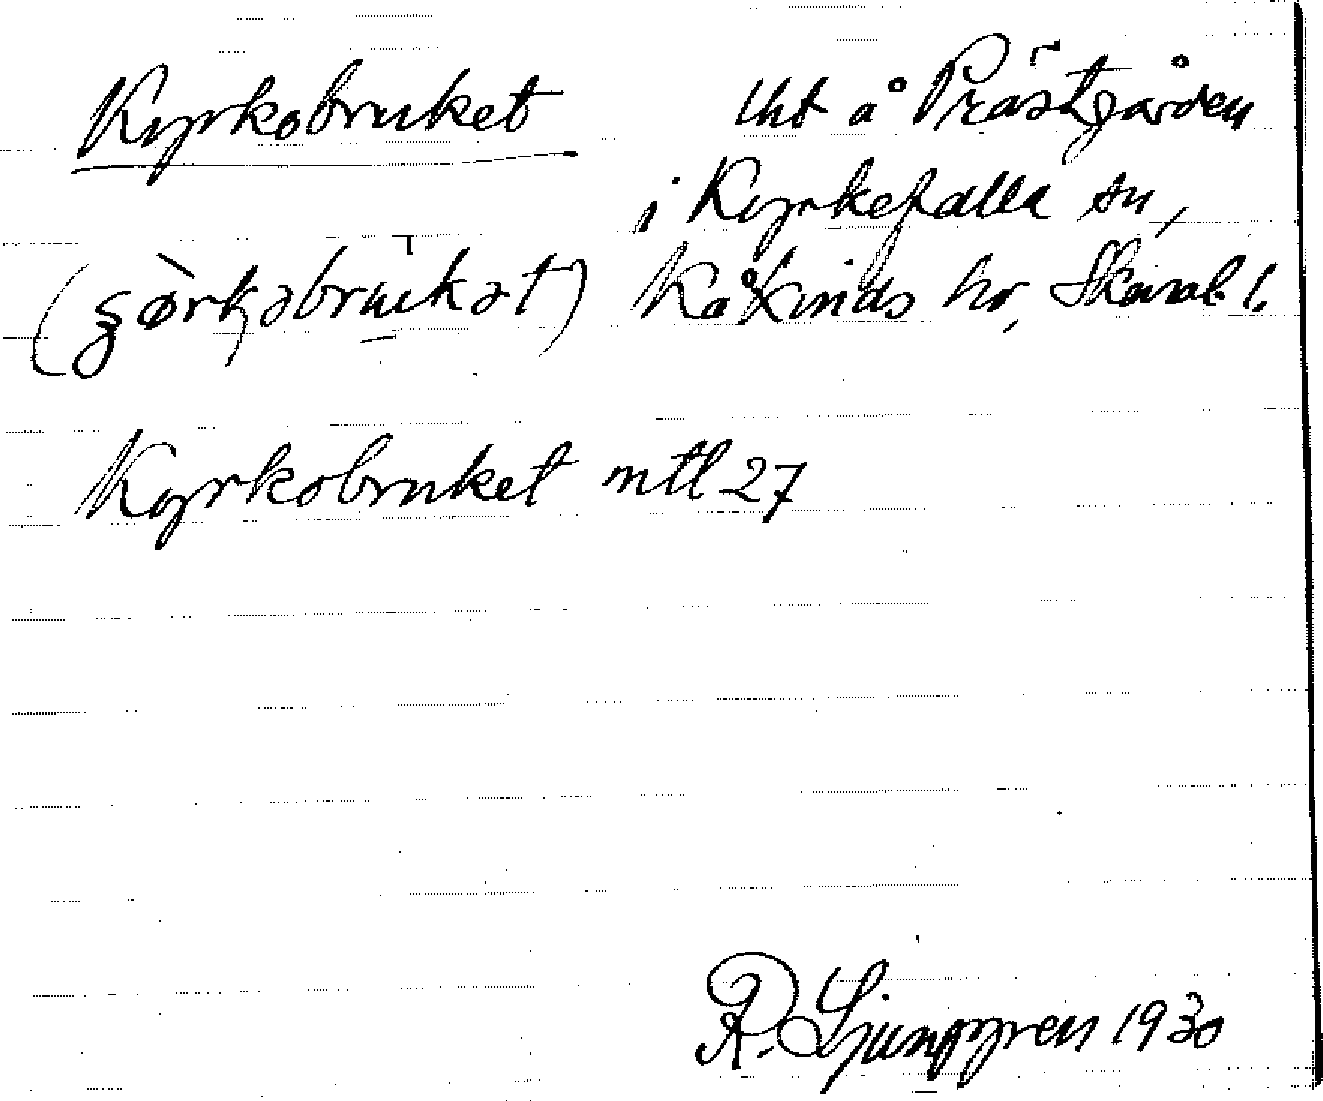 Kyrkobruket Uht å Prästgården
i Kyrkefalla sn,
Kåkinds hd, Skarab. l.
Kyrkobruket mtl 27
R. Ljunggren 1930